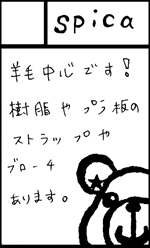 spica
羊毛中心です!
樹脂やプラ板の
ストラップや
ブローチ
あります。